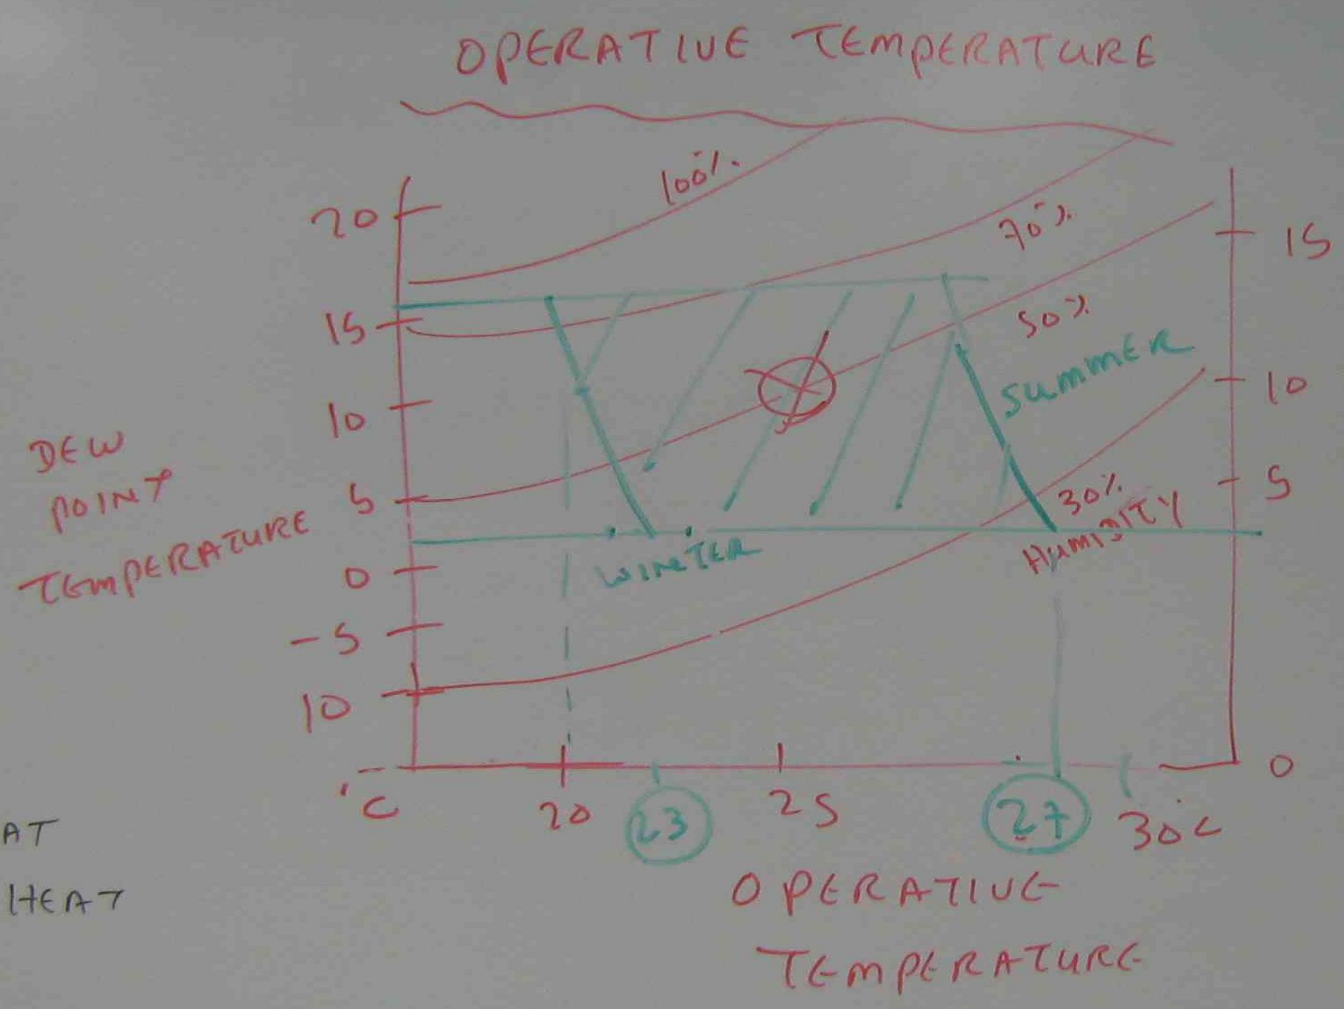 OPERATIVE TEMPERATURE
100%
70%
50%
30%
HUMIDITY
SUMMER
WINTER
20
15
10
5
0
-5
10
°C
DEW
POINT
TEMPERATURE
15
10
5
0
20
23
25
27
30°C
OPERATIVE
TEMPERATURE
AT
HEAT